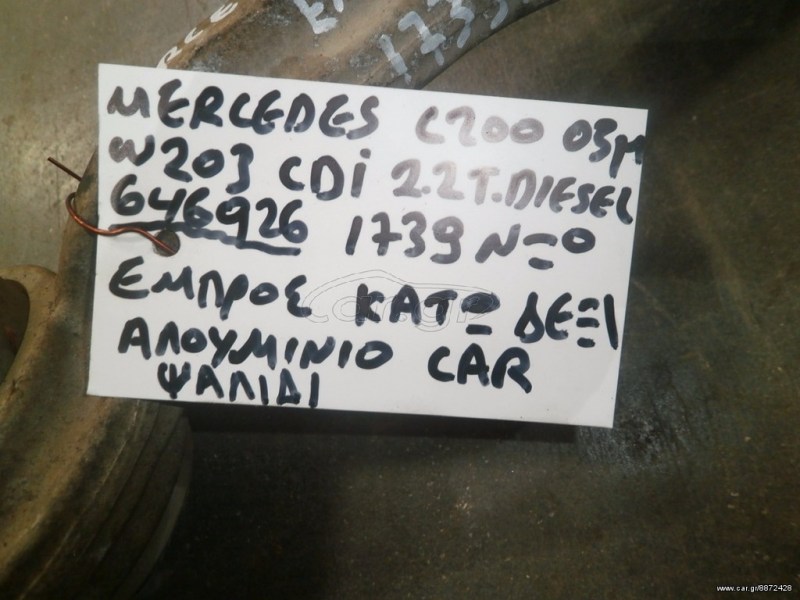 1733
MERCEDES C200 03M
W203 CDi 2.2T.DIESEL
646926 1739 N=0
ΕΜΠΡΟΣ ΚΑΤΩ ΔΕΞΙ
ΑΛΟΥΜΙΝΙΟ CAR
ΨΑΛΙΔΙ
car.gr
www.car.gr/8872428